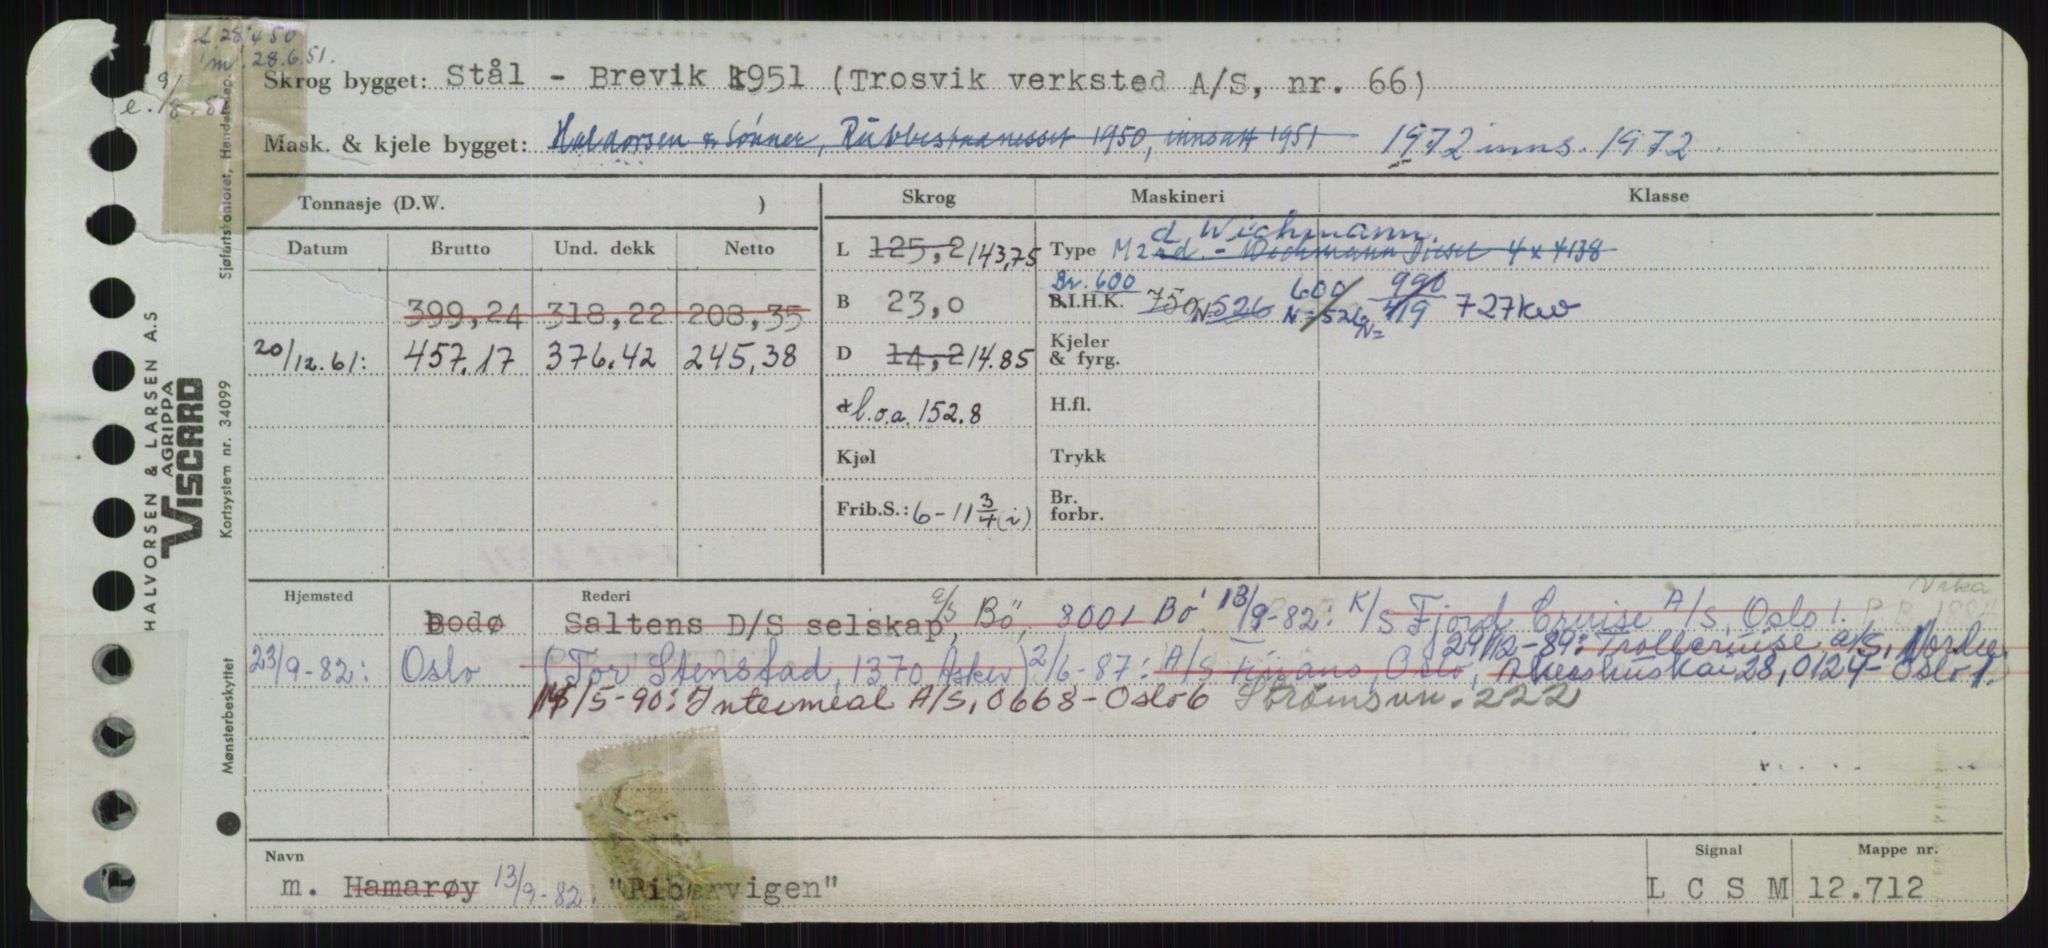 k. 28.4.50
"m". 28.6.51.
Skrog bygget: Stål - Brevik 1951 (Trosvik verksted A/S, nr. 66)
Mask. & kjele bygget: Haldorsen & Sönner, Rubbestadnesset 1950, innsatt 1951 1972 inns. 1972.
Tonnasje (D.W. ) Skrog Maskineri Klasse
Datum Brutto Und. dekk Netto
L 125,2 143,75 Type M 2 d. Wichmann
2 rd. - Wichmann Diesel 4 x 4138
Br. 600
399,24 318,22 208,35 B 23,0 B.I.H.K. 750 N=526 600 N=526 990 N=719 727kw
20/12.61: 457.17 376.42 245,38 D 14,2 14.85 Kjeler & fyrg.
d l.o.a. 152.8 H.fl.
Kjøl Trykk
Frib.S.: 6-11 3/4 (i) Br. forbr.
Hjemsted Rederi
Vika
Bodø Saltens D/S selskap, a/s Bö, 8001 Bö 13/9-82: K/S Fjord Cruise A/S, Oslo 1.
29/12-89: Trollcruise a/s, Nordre
23/9-82: Oslo (Tor Stenstad, 1370 Asker) 2/6-87: A/S Oslo, Akershuskai 28, 0124-Oslo 1.
14/5-90: Intermeal A/S, 0668-Oslo 6 Strömsvn. 222
Navn Signal Mappe nr.
m. Hamarøy 13/9-82: "Ribervigen" L C S M 12.712
HALVORSEN & LARSEN A.S
AGRIPPA
VISCARD
Mønsterbeskyttet Kortsystem nr. 34099 Sjøfartskontoret, Handelsdep.